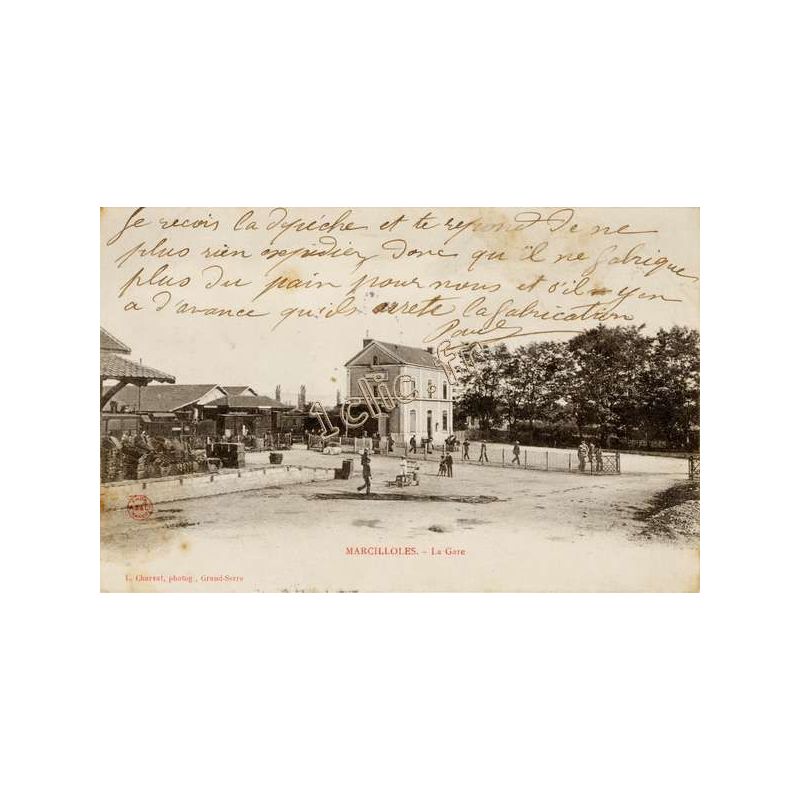 Je reçois la dépéche et te repond De ne
plus rien expidier Donc qu'il ne fabrique
plus du pain pour nous et s'il y en
a d'avance qu'ils arrete la fabrication
Paul
1clic1.fr
MARCILLOLES. – La Gare
L. Charvat, photog., Grand-Serre